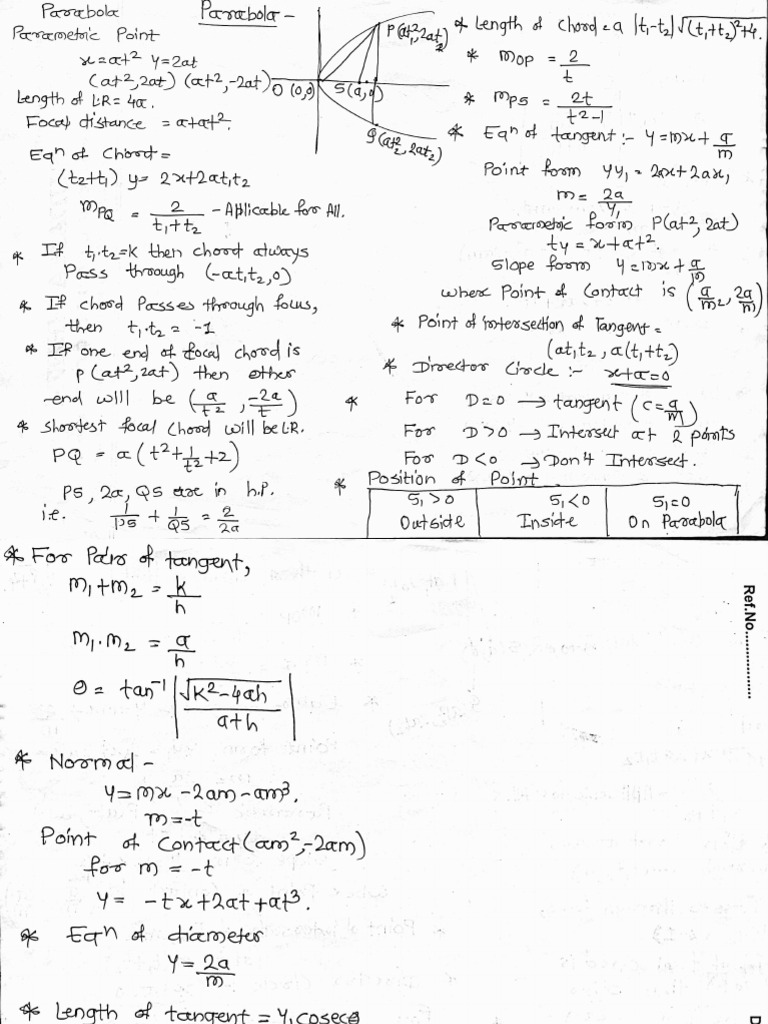 Parabola
Parabola -
Parametric Point
x=at² y=2at
(at², 2at) (at², -2at)
Length of LR = 4a.
Focal distance = a+at².
Eqⁿ of Chord =
(t₂+t₁) y = 2x+2at₁t₂
m_PQ = 2/(t₁+t₂) - Applicable for All.
* If t₁.t₂=k then chord always
Pass through (-at₁t₂,0)
* If chord Passes through focus,
then t₁.t₂ = -1
* If one end of focal chord is
P(at², 2at) then other
end will be (a/t², -2a/t)
* Shortest focal Chord will be LR.
PQ = a(t²+1/t²+2)
PS, 2a, QS are in h.P.
i.e. 1/PS + 1/QS = 2/2a
P(at₁², 2at₂)
O (0,0) S(a,0)
Q(at₂², 2at₂)
* Length of Chord = a |t₁-t₂| √(t₁+t₂)²+4.
* m_OP = 2/t
* m_PS = 2t/(t²-1)
* Eqⁿ of tangent :- y=mx+a/m
Point form yy₁ = 2ax+2ax₁
m = 2a/y₁
Parametric form P(at², 2at)
ty = x+at².
Slope form y=mx+a/m
where Point of Contact is (a/m², 2a/m)
* Point of intersection of Tangent =
(at₁t₂, a(t₁+t₂)
* Director Circle :- x+a=0
* For D=0 → tangent (c=a/m)
For D>0 → Intersect at 2 points
For D<0 → Don4 Intersect.
* Position of Point
S₁>0 S₁<0 S₁=0
Outside Inside On Parabola
* For Pair of tangent,
m₁+m₂ = k/h
m₁.m₂ = a/h
θ = tan⁻¹ |√k²-4ah/(a+h)|
* Normal -
y=mx-2am-am³.
m=-t
Point of Contact (am²,-2am)
for m = -t
y = -tx+2at+at³.
* Eqⁿ of diameter
y = 2a/m
* Length of tangent = y₁cosecθ
Ref.No...............